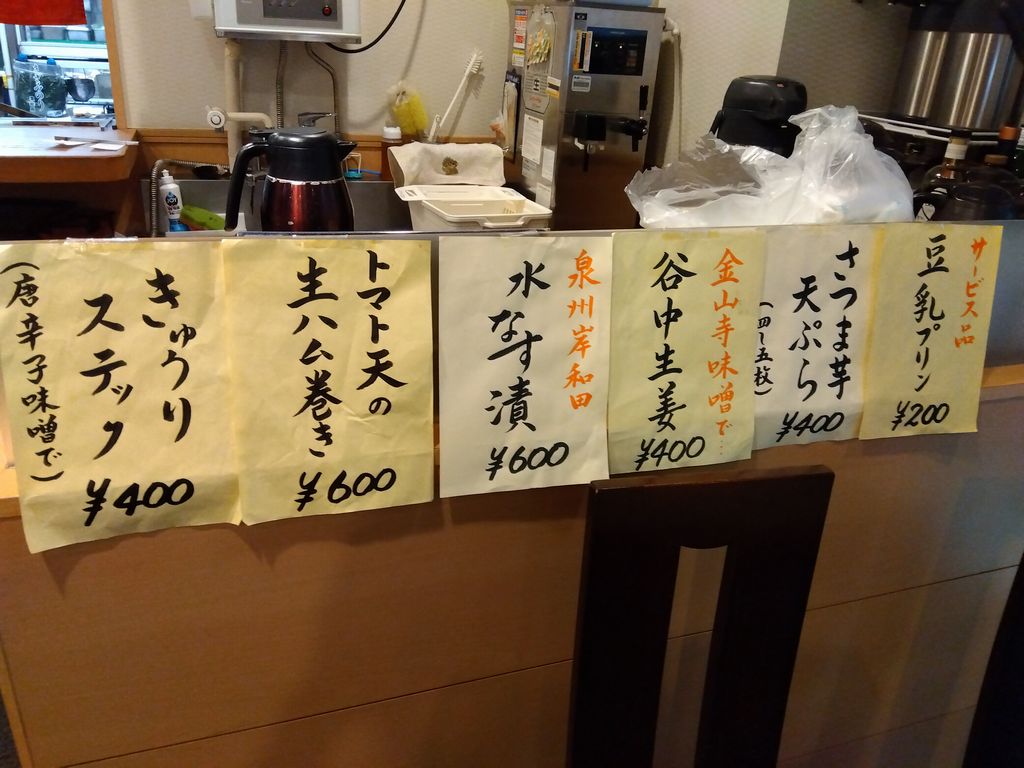 サービス品
豆乳プリン
¥200
さつま芋
天ぷら
(四〜五枚)
¥400
金山寺味噌で…
谷中生姜
¥400
泉州岸和田
水なす漬
¥600
トマト天の
生ハム巻き
¥600
きゅうり
スティック
(唐辛子味噌で)
¥400